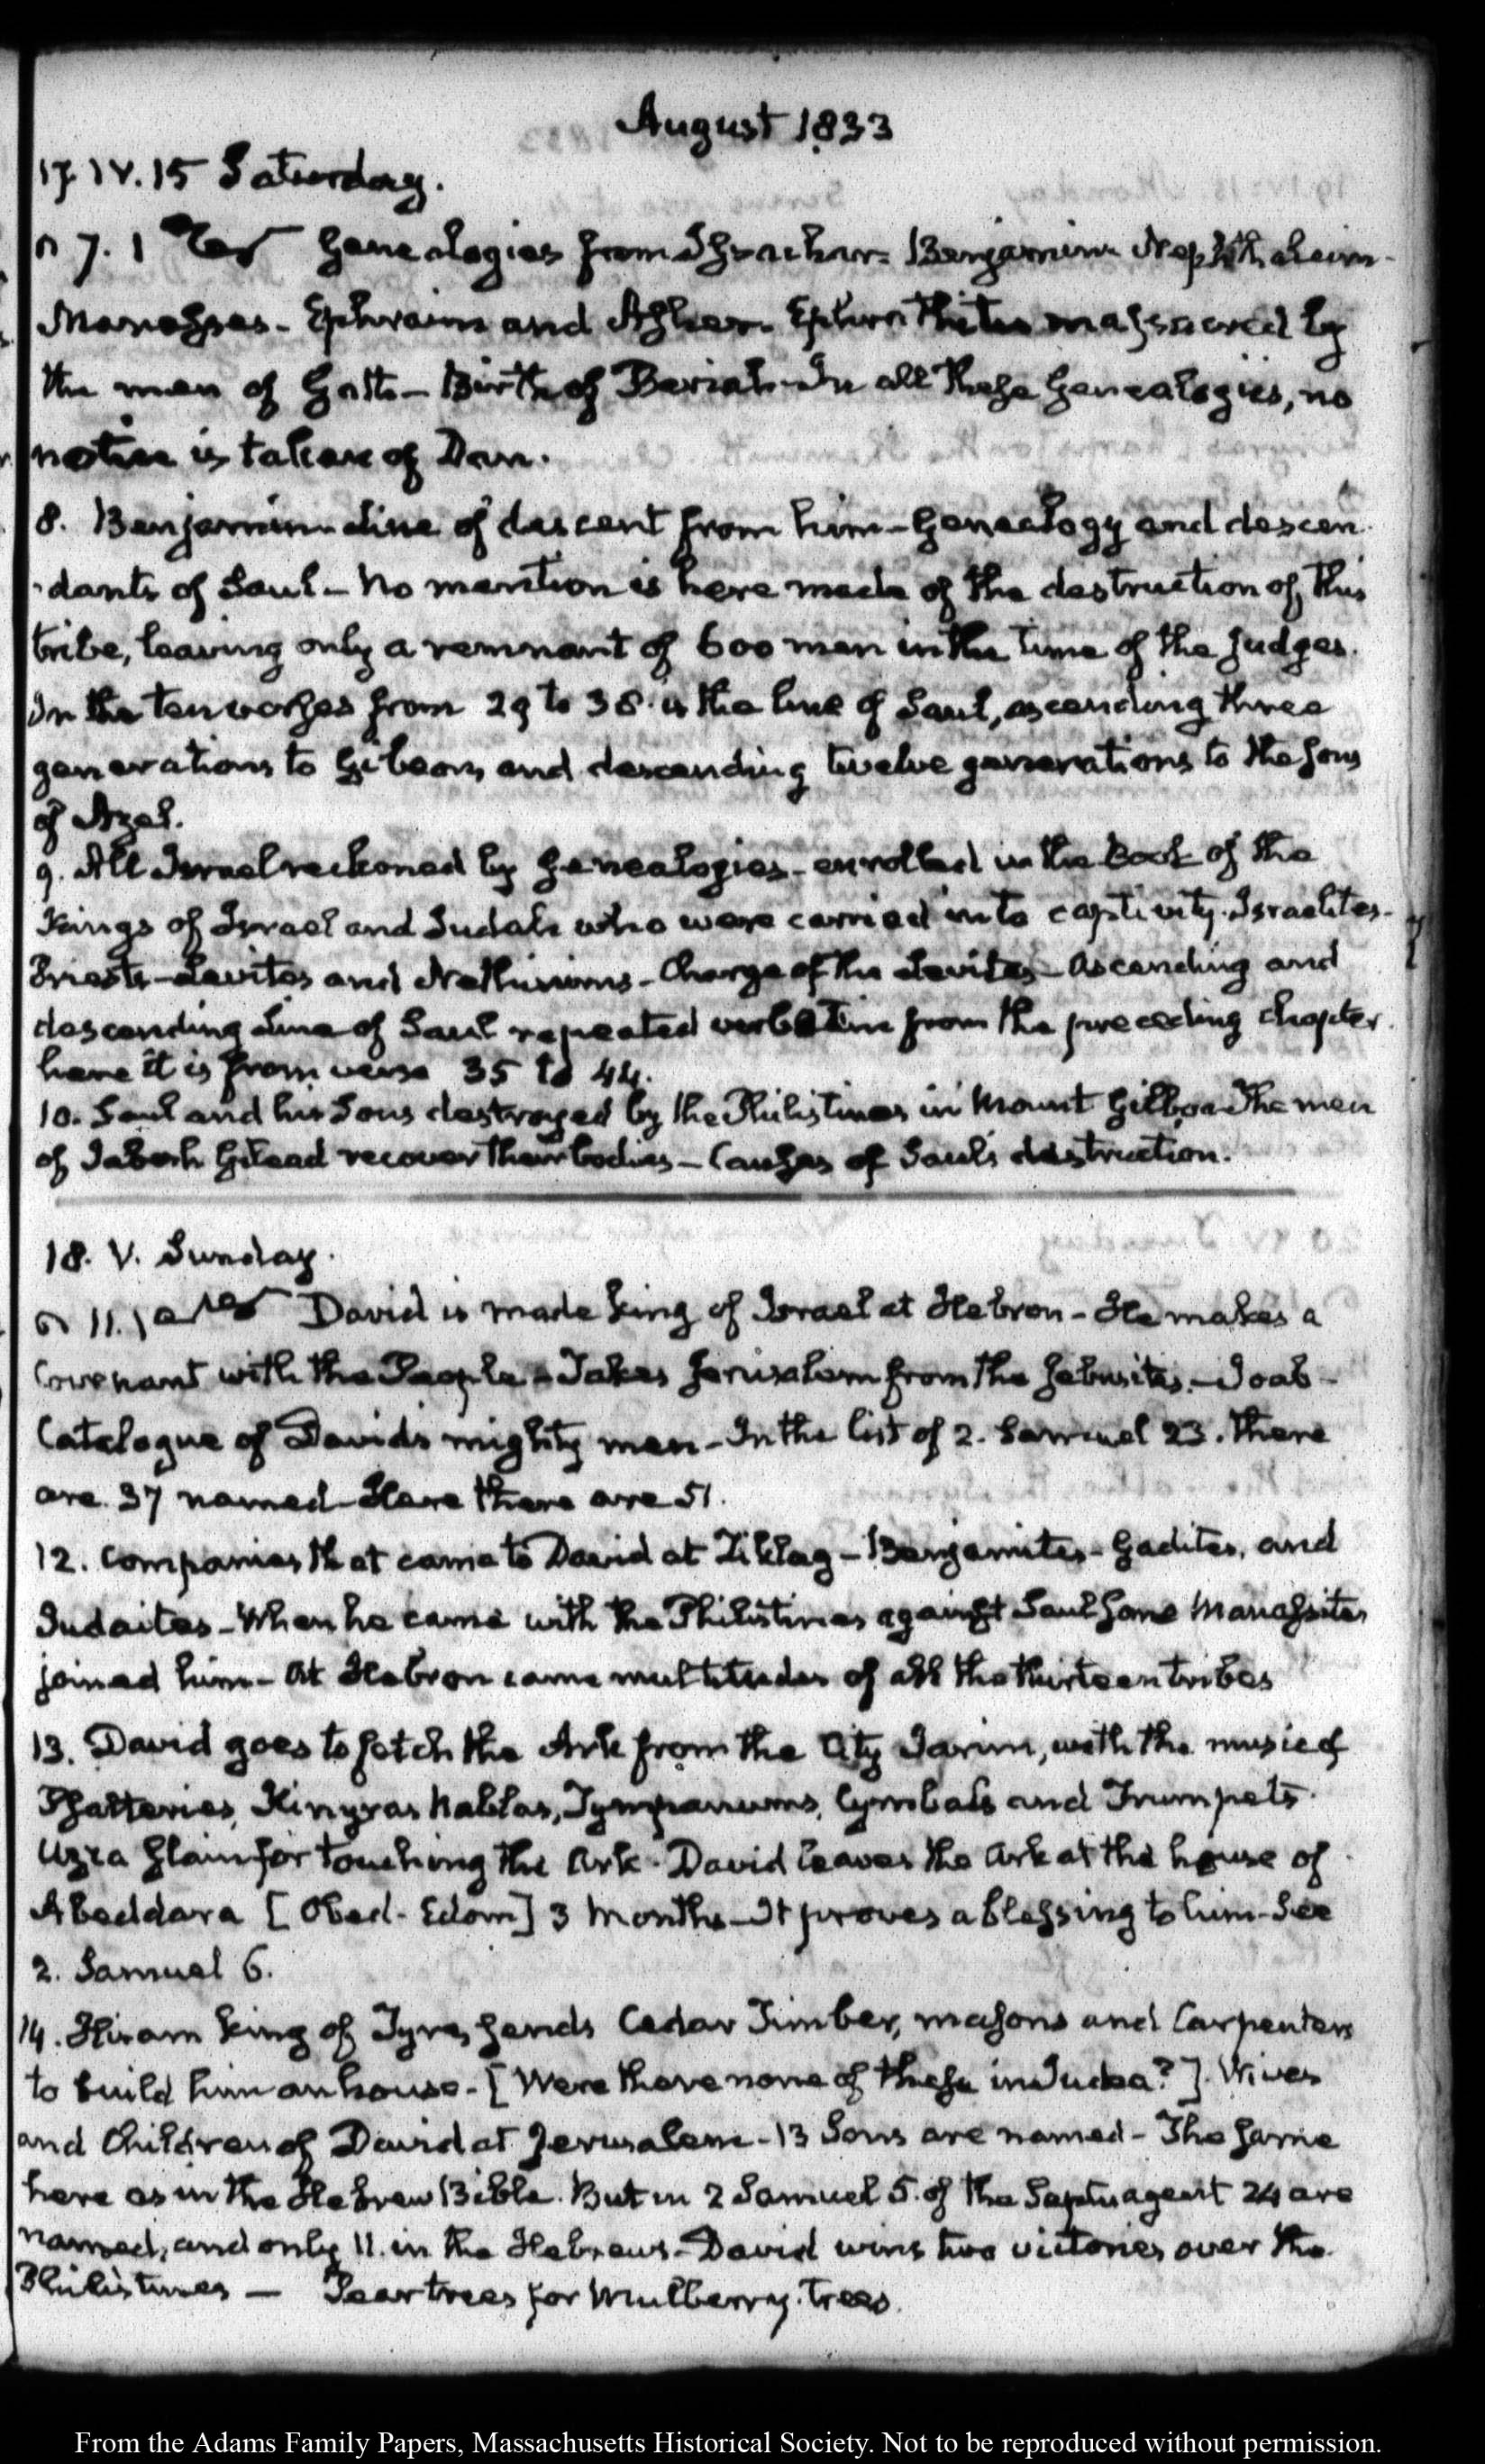 August 1833
17. IV. 15 Saturday.
7. 1 Genealogies from Issachar. Benjamin Nephthaleim-
Manasses - Ephraim and Asher. Ephrathites massacred by
the men of Gath - Birth of Beriah - In all these Genealogies, no
notice is taken of Dan.
8. Benjamin Line of descent from him - Genealogy and descen
-dants of Saul - No mention is here made of the destruction of this
tribe, leaving only a remnant of 600 men in the time of the Judges.
In the ten verses from 29 to 38. is the line of Saul, ascending three
generations to Gibeon, and descending twelve generations to the sons
of Azel.
9. All Israel reckoned by Genealogies - enrolled in the book of the
Kings of Israel and Judah who were carried into captivity. Israelites-
Priests - Levites and Nethinims - Charge of the Levites - Ascending and
descending Line of Saul repeated verbatim from the preceding chapter.
here it is from verse 35 to 44.
10. Saul and his Sons destroyed by the Philistines in Mount Gilboa The men
of Jabesh Gilead recover their bodies - Causes of Saul's destruction.
18. V. Sunday.
11. 1 David is made King of Israel at Hebron - He makes a
Covenant with the People - Takes Jerusalem from the Jebusites. - Joab -
Catalogue of Davids mighty men - In the list of 2. Samuel 23. there
are 37 named - Here there are 51.
12. Companies that came to David at Ziklag - Benjamites - Gadites, and
Judaites - When he came with the Philistines against Saul some Manassites
joined him - At Hebron came multitudes of all the thirteen tribes
13. David goes to fetch the Ark from the City Jarim, with the music of
Psalteries, Kinyras Nablas, Tympanums, Cymbals and Trumpets.
Uzza slain for touching the Ark. David leaves the Ark at the house of
Abeddara [Obed-Edom] 3 Months - It proves a blessing to him - See
2. Samuel 6.
14. Hiram King of Tyre, sends Cedar Timber, masons and Carpenters
to build him an house. - [Were there none of these in Judea?]. Wives
and Children of David at Jerusalem - 13 Sons are named - The same
here as in the Hebrew Bible. But in 2 Samuel 5. of the Septuagent 24 are
named, and only 11. in the Hebrews - David wins two victories over the
Philistines - Pear trees for Mulberry. trees.
From the Adams Family Papers, Massachusetts Historical Society. Not to be reproduced without permission.